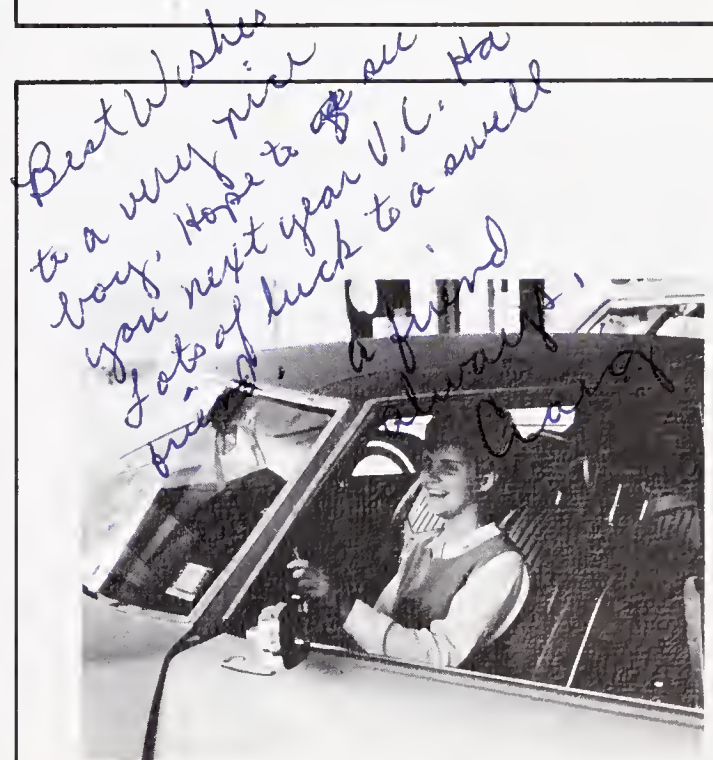 Best Wishes
to a very nice
boy. Hope to see
you next year V.C. Ha
Lots of luck to a swell
friend. a friend
always,